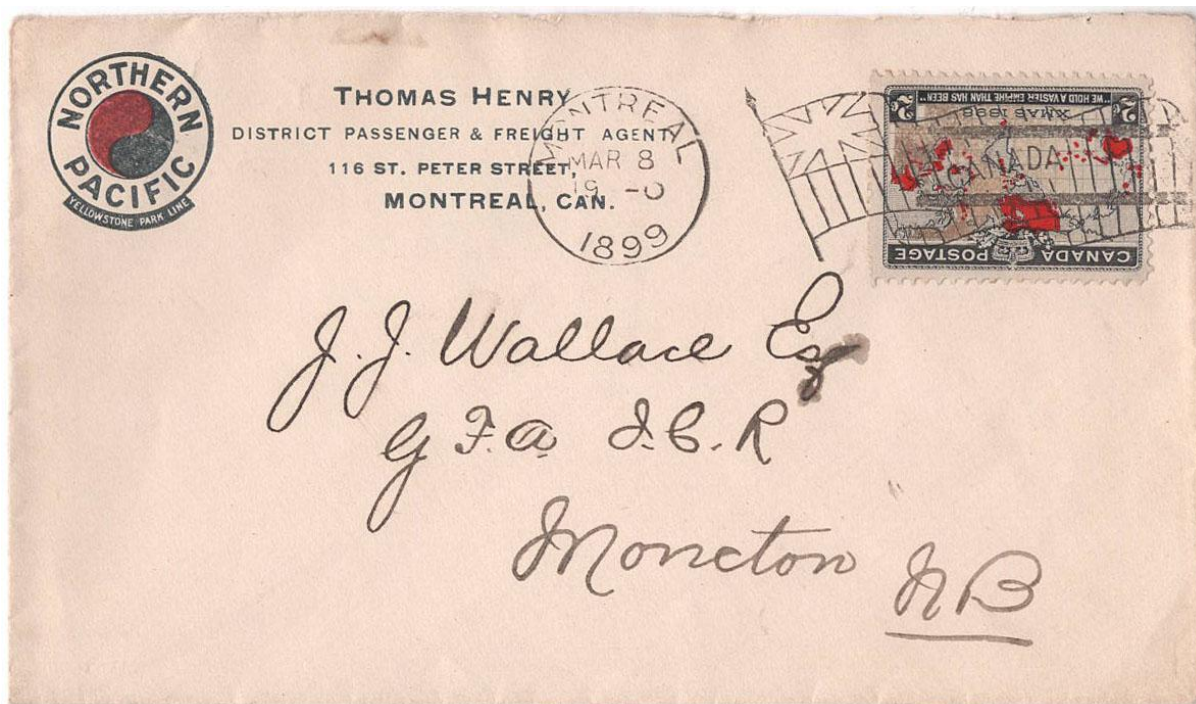 NORTHERN
PACIFIC
YELLOWSTONE PARK LINE
THOMAS HENRY
DISTRICT PASSENGER & FREIGHT AGENT,
116 ST. PETER STREET,
MONTREAL, CAN.
MONTREAL
MAR 8
19 -0
1899
CANADA
CANADA POSTAGE
XMAS 1898
"WE HOLD A VASTER EMPIRE THAN HAS BEEN"
2c 2c
J. J. Wallace Esq
G F. a I. C. R
Moncton N B